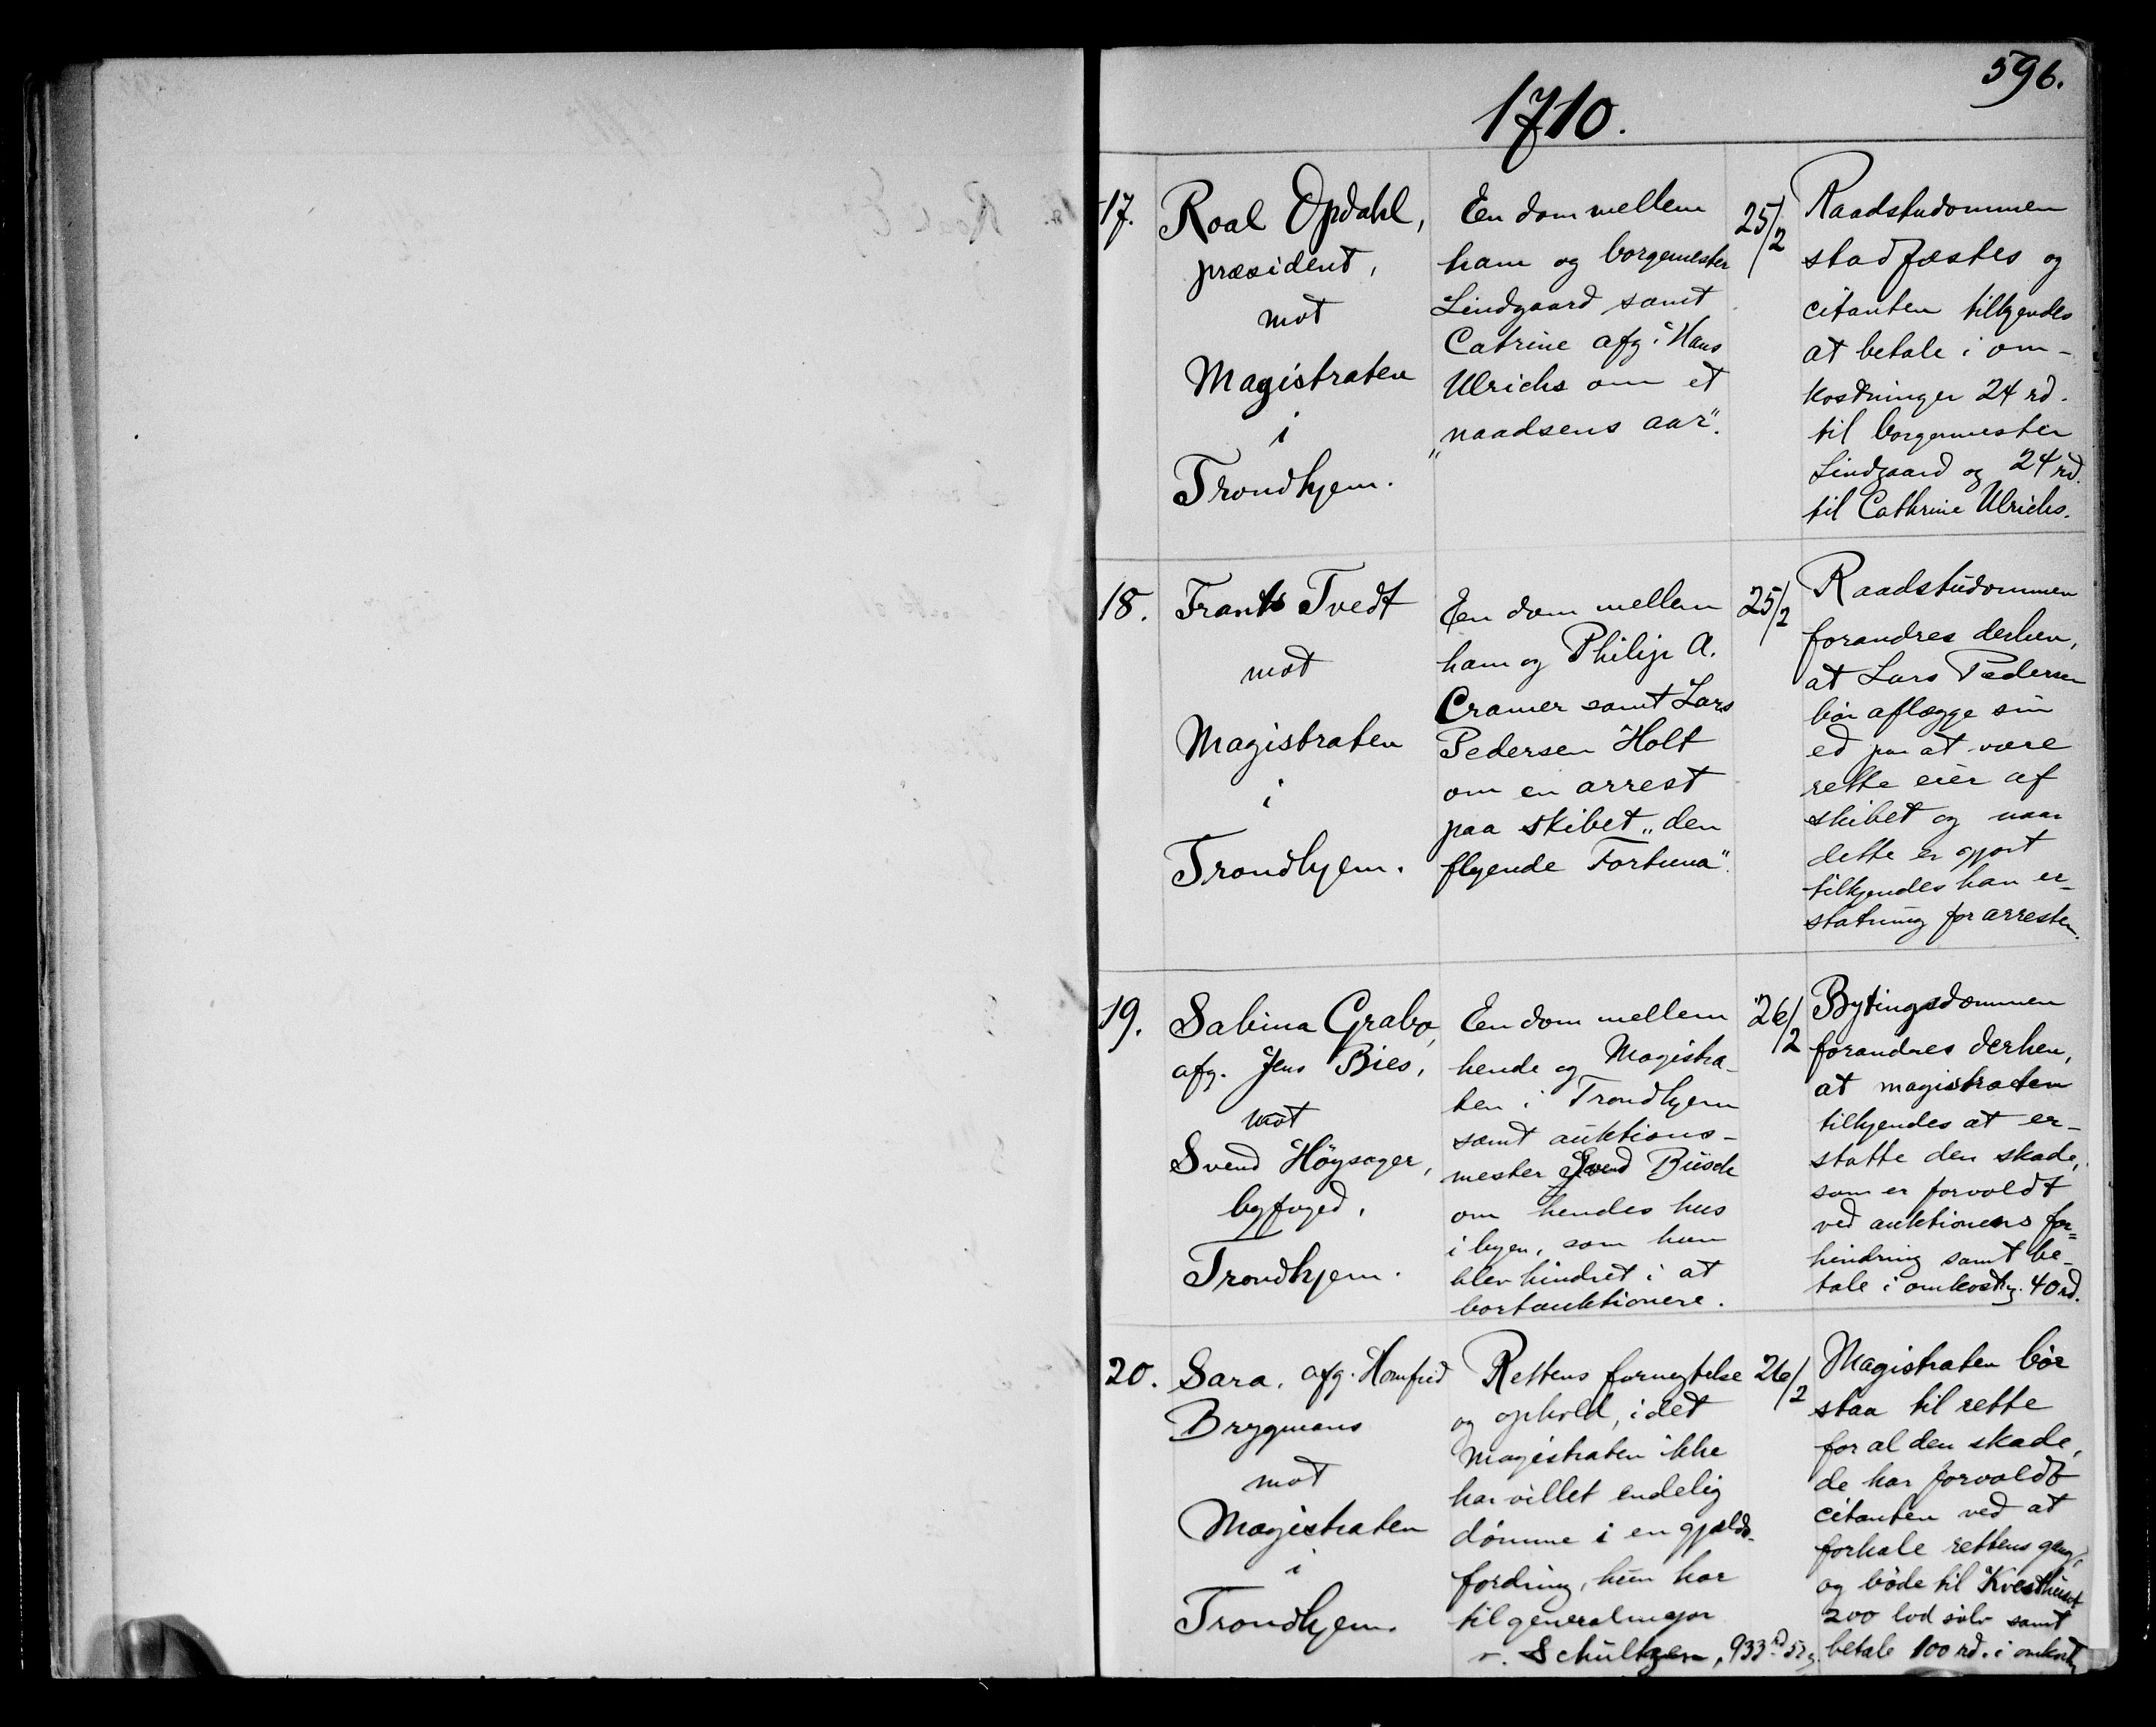 596.
1710.
17.
Roal Opdahl,
præsident,
mot
Magistraten
i
Trondhjem.
En dom mellem
ham og borgemester
Lindgaard samt
Catrine afg. Hans
Ulrichs om et
„naadsens aar”.
25/2
Raadstudommen
stadfæstes og
citanten tilkjendes
at betale i om-
kostninger 24 rd.
til borgermester
Lindgaard og 24 rd.
til Cathrine Ulrichs.
18.
Frants Tvedt
mot
Magistraten
i
Trondhjem.
En dom mellem
ham og Philip A.
Cramer samt Lars
Pedersen Holt
om en arrest
paa skibet „den
flyende Fortuna”.
25/2
Raadstudommen
forandres derhen,
at Lars Pedersen
bør aflægge sin
ed paa at være
rette eier af
skibet og naar
dette er gjort
tilkjendes han er-
statning for arresten.
19.
Sabina Grabo,
afg. Jens Bies,
mot
Svend Höysager,
byfoged,
Trondhjem.
En dom mellem
hende og Magistra-
ten i Trondhjem
samt auktions-
mester Svend Büsch
om hendes hus
i byen, som hun
blev hindret i at
bortauktionere.
26/2
Bytingsdommen
forandres derhen,
at magistraten
tilkjendes at er-
statte den skade,
som er forvoldt
ved auktionens for=
hindring samt be-
tale i omkostn. 40 rd.
20.
Sara, afg. Homfred
Brygmans
mot
Magistraten
i
Trondhjem.
Rettens fornegtelse
og ophold, idet
Magistraten ikke
har villet endelig
dömme i en gjælds-
fordring, hun har
til generalmajor
v. Schultzen, 933 rd.
26/2
Magistraten bör
staa til rette
for al den skade,
de har forvoldt
citanten ved at
forhale rettens gang,
og böde til Kvesthuset
200 lod sölv samt
betale 100 rd. i omkostn.